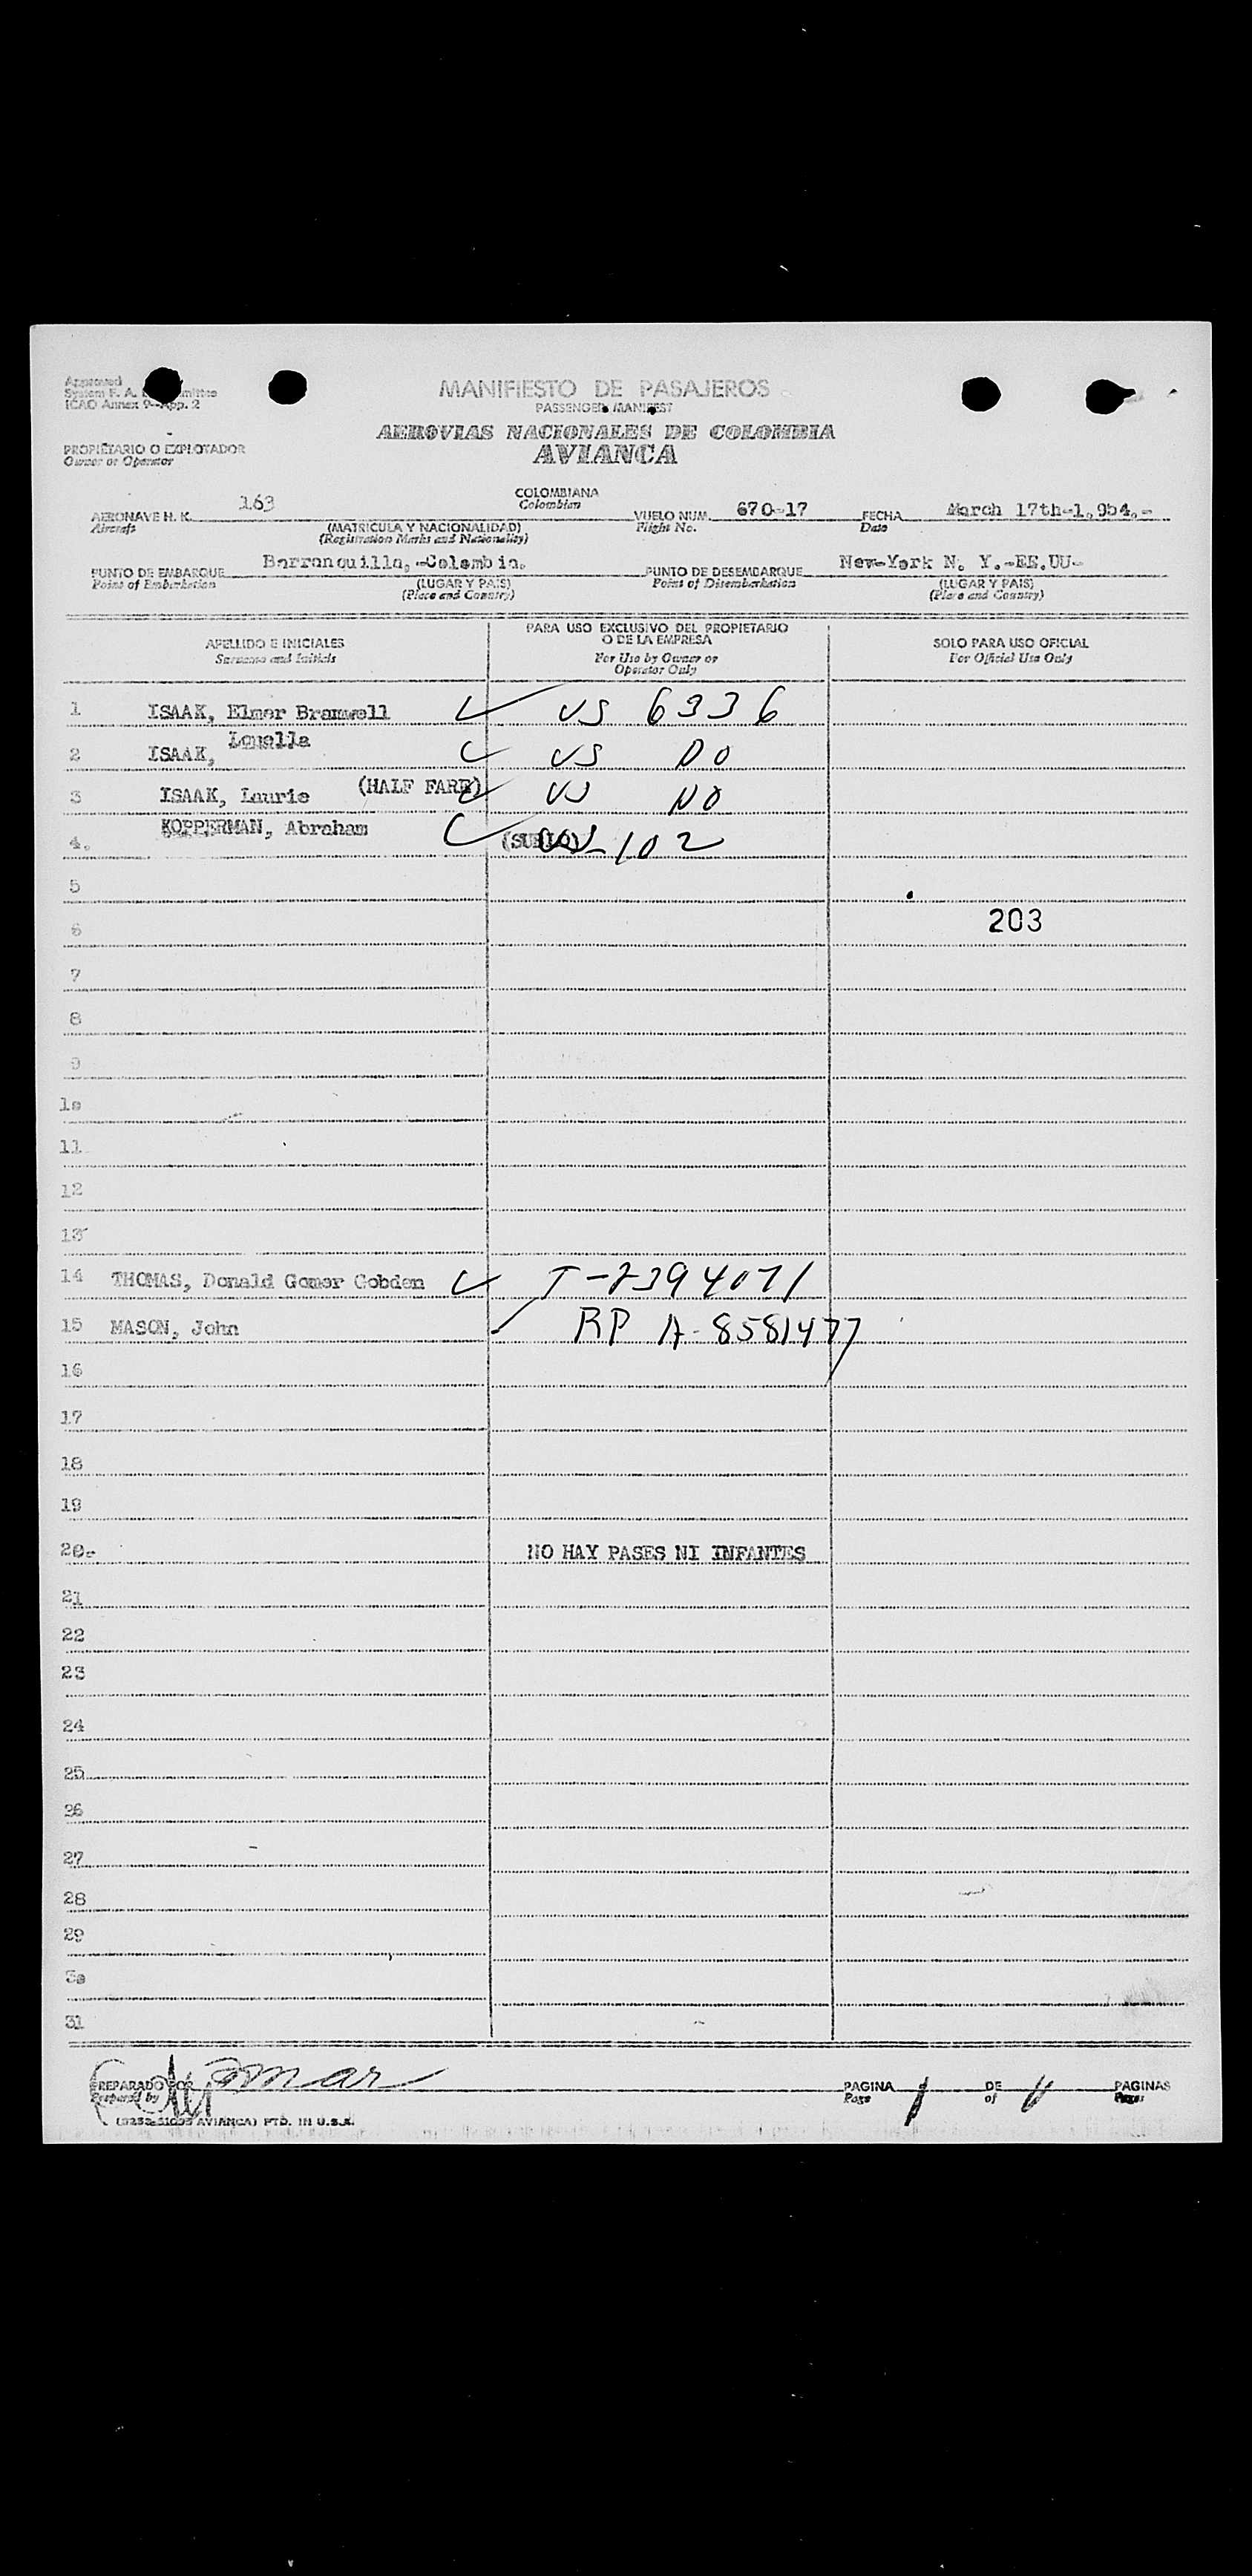 Approved
System F. A. L. Committee
ICAO Annex 9-App. 2
MANIFIESTO DE PASAJEROS
PASSENGER MANIFEST
AEROVIAS NACIONALES DE COLOMBIA
AVIANCA
PROPIETARIO O EXPLOTADOR
Owner or Operator
AERONAVE H. K. 163 COLOMBIANA VUELO NUM. 670-17 FECHA March 17th-1,954.-
Aircraft Colombian Flight No. Date
(MATRICULA Y NACIONALIDAD)
(Registration Marks and Nationality)
PUNTO DE EMBARQUE Barranquilla,-Colombia. PUNTO DE DESEMBARQUE New-York N. Y.-EE.UU-
Point of Embarkation (LUGAR Y PAIS) Point of Disembarkation (LUGAR Y PAIS)
(Place and Country) (Place and Country)
APELLIDO E INICIALES PARA USO EXCLUSIVO DEL PROPIETARIO O DE LA EMPRESA SOLO PARA USO OFICIAL
Surname and Initials For Use by Owner or Operator Only For Official Use Only
1 ISAAK, Elmer Bramwell ✓ VS 6336
2 ISAAK, Louella ✓ VS DO
3 ISAAK, Laurie (HALF FARE) ✓ VS DO
4. KOPPERMAN, Abraham ✓ 102
5
6 203
7
8
9
1o
11
12
13
14 THOMAS, Donald Gomer Cobden ✓ T-7394071
15 MASON, John ✓ RP A-8581477
16
17
18
19
20- NO HAY PASES NI INFANTES
21
22
23
24
25
26
27
28
29
3o
31
PREPARADO POR PAGINA 1 DE PAGINAS
Prepared by Page of Pages
AVIANCA) PTD. IN U.S.A.